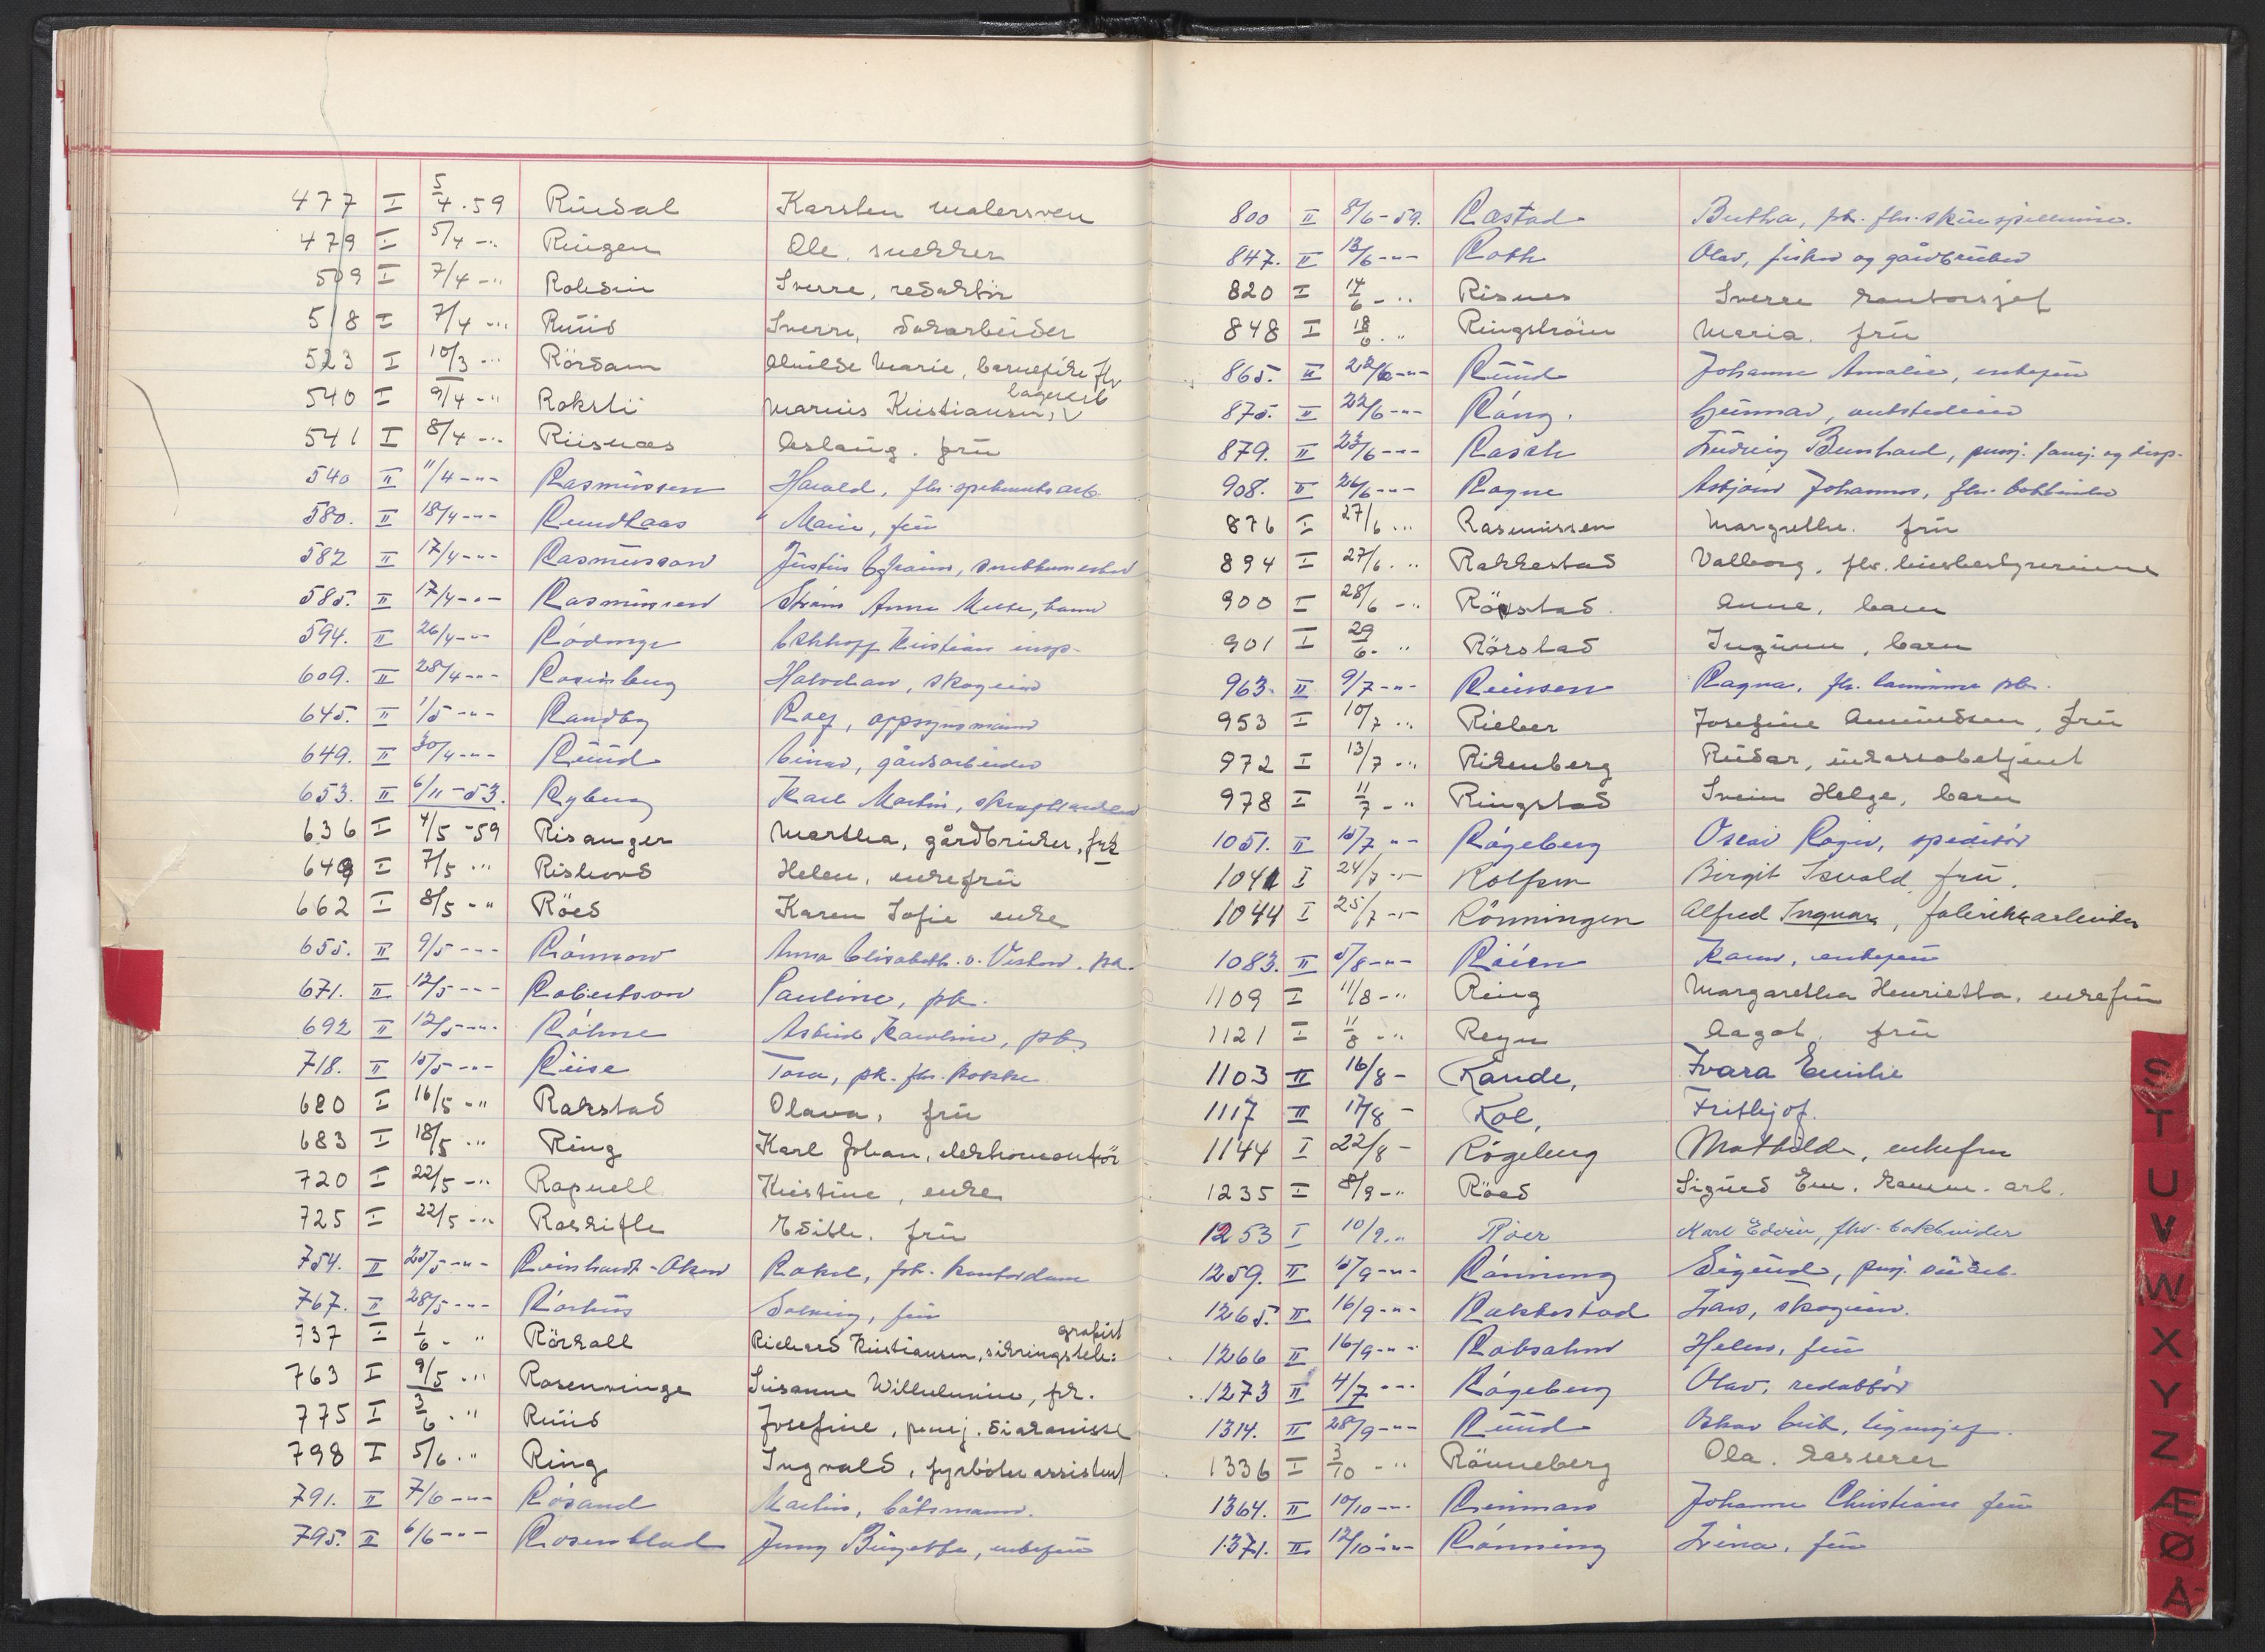 477 I 5/4.59 Rudal Karsten malersven
479 I 5/4 -" Ringen Ole, snekker
509 I 7/4 -" Rolsdin Sverre, redaktör
518 I 7/4 -" Ruud Sverre, dokarbeider
523 I 10/3 -" Rördam Alvilde Marie, barnepike flv
lagerarb
540 I 9/4 -" Roksti Marius Kristiansen, V
541 I 8/4 -" Riisnæs Aslaug. frü
540 II 11/4 -"- Rasmussen Harald, fhv.
580. II 18/4 -"- Rundhaas Marie, frü
582 II 17/4 -"- Rasmussen Justus Efraim,
585. II 17/4 -"- Rasmussen Anne Mette, barn
594. II 26/4 -"- Rödinge Eckhoff Kristian insp.
609. II 28/4 -"- Rosenberg Halvdan, skogeier
645. II 1/5 -"- Randby Roly, oppsynsmann
649. II 30/4 -"- Ruud Einar, gårdsarbeider
653. II 6/11-53. Ryberg Karl Martin, skraphandler
636 I 4/5 -59 Risanger Martha, gårdbruker, frk
649 I 7/5 -" Rishovd Helen, enkefrü
662 I 8/5 -" Röed Karen Sofie enke
655. II 9/5 -"- Rönnow Anna Elisabeth. v. Westen. pk.
671. II 12/5 -"- Robertson Pauline, pk.
692 II 12/5 -"- Röhne Astrid Karoline, pk.
718. II 15/5 -"- Riise Tora, pk. fhv. kokke
680 I 16/5 -" Rakstad Olava, frü
683 I 18/5 -" Ring Karl Johan, elektromontör
720 I 22/5 -" Rapnell Kristine, enke
725 I 22/5 -" Roskifte Edith. frü
754. II 25/5 -"- Reinhardt-Aker Rakel, frk. kontordame
767. II 28/5 -"- Rörhus Solveig, frü
grafist
737 I 1/6 - " Rörkoll Richard Kristiansen, sikringstele:
763 I 9/5 -" Rosenvinge Susanne Willielmine, fk.
775 I 3/6 -" Ruud Josefine, pensj. diakonisse
798 I 5/6 -" Ring Ingvald, fyrböterassistent
791. II 7/6 -"- Rösand Martin, båtsmann.
795. II 6/6 -"- Rosenblad Jenny Birgitte, enkefrü
800 II 8/6-59. Rastad Butha, pk. fhv. skuespillerinne.
847. II 13/6 -"- Roth Olav, fisker og gårdbruker
820 I 14/6 - " Risnes Sverre kontorsjef
848 I 18/6 . " Ringström Maria. frü
865. II 22/6 -"- Ruud Johanne Amalie, enkefrü
875. II 22/6 -"- Röng. Gunnar,
879. II 23/6 -"- Rasch Ludvig Bernhard, pensj. og disp.
908. II 26/6 -"- Ragne Asbjörn Johannes, fhv. bokbinder
876 I 27/6 -" Rasmussen Margrethe. frü
894 I 27/6 -" Rakkestad Valborg, fhv. husbestyrerinne
900 I 28/6 -" Rörstad. Anne, barn
901 I 29/6 - " Rörstad Ingunn, barn
963. II 9/7 -"- Reinsen Ragna, fhv. lærerinne pk.
953 I 10/7 -" Rieber Josefine Amundsen, frü
972 I 13/7 -" Rikenberg Reidar, inkassobetjent
978 I 11/7 -" Ringstad Svein Helge, barn
1051. II 15/7 -"- Rögeberg Oscar Roger, speditör
1041 I 24/7 -"- Rolfsen Birgit Isvald, frü.
1044 I 25/7 -"- Rönningen Alfred Ingvar, fabrikkarbeider
1083. II 5/8 -"- Röien Karen, enkefrü
1109 I 11/8 -" Ring Margaretha Henrietta, enkefrü
1121 I 11/8 -" Reyn Aagot. frü
1103 II 16/8 - Rande, Ivara Emilie
1117 II 17/8 - Roe, Frithjof.
1144 I 22/8 - Rögeberg Mathilde, enkefru
1235 I 8/9 -" Röed Sigurd Em. komm. arb.
1253 I 10/9 -" Röer Karl Edvin, fhv. bokbinder
1259. II 15/9 -"- Rönning Sigurd, pensj.
1265. II 16/9 -"- Rakkestad Lars, skogeier.
1266 II 16/9 -"- Robsahm Helen, frü
1273 II 4/7 -"- Rögeberg Olav, redaktör
1314. II 28/9 -"- Ruud Oskar Eik, lignsjef.
1336 I 3/10 -" Rönneberg Ola. kasserer
1364. II 10/10 -"- Reinman Johanne Christiane frü
1371. II 12/10 -"- Rönning Trina, frü
S
T
U
V
W
X
Y
Z
Æ
Ø
Å